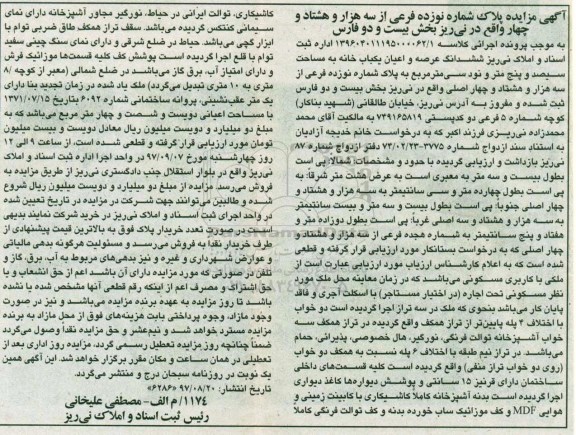 آگهی مزایده پلاک شماره نوزده فرعی از سه هزار و هشتاد و
چهار واقع در نی‌ریز بخش بیست و دو فارس
به موجب پرونده اجرائی کلاسه ۱۳۹۶۰۴۰۱۱۱۹۵۰۰۰۰۶۲/۱ اداره ثبت
اسناد و املاک نی‌ریز ششدانگ عرصه و اعیان یکباب خانه به مساحت
سیصد و پنج متر و نود سی‌مترمربع به پلاک شماره نوزده فرعی از
سه هزار و هشتاد و چهار اصلی واقع در نی‌ریز بخش بیست و دو فارس
ثبت شده و مفروز به آدرس نی‌ریز، خیابان طالقانی (شهید بناکار)
کوچه شماره ۵ فرعی دو کدپستی ۷۴۹۱۶۵۸۱۹ به مالکیت آقای محمد
محمدزاده نی‌ریزی فرزند اکبر که به درخواست خانم خدیجه آزادیان
به استناد سند ازدواج شماره ۳۷۷۵-۷۳/۰۲/۲۳ دفتر ازدواج شماره ۸۷
نی‌ریز بازداشت و ارزیابی گردیده با حدود و مشخصات شمالا: پی است
بطول بیست و سه متر به معبری است به عرض هشت متر شرقا: به
پی است بطول چهارده متر و سی سانتیمتر به سه هزار و هشتاد و
چهار اصلی جنوبا: پی است بطول بیست و سه متر و بیست سانتیمتر
به سه هزار و هشتاد و سه اصلی غربا: پی است بطول دوازده متر و
هفتاد و پنج سانتیمتر به شماره هجده فرعی از سه هزار و هشتاد و
چهار اصلی که به درخواست بستانکار مورد ارزیابی قرار گرفته و قطعی
شده است که به اعلام کارشناس ارزیاب مورد ارزیابی عبارت است از
ملکی با کاربری مسکونی می‌باشد که در زمان معاینه محل ملک مورد
نظر مسکونی تحت اجاره (در اختیار مستاجر) با اسکلت آجری و فاقد
پایان کار می‌باشد بنحوی که ملک در سه تراز اجرا گردیده است دو خواب
با اختلاف ۴ پله پایین‌تر از تراز همکف واقع گردیده در تراز همکف سه
خواب آشپزخانه توالت فرنگی، نورگیر، هال خصوصی، پذیرائی، حمام
می‌باشد. در تراز نیم طبقه با اختلاف ۶ پله نسبت به همکف دو خواب
(روی دو خواب تراز منفی) واقع گردیده است کلیه قسمت‌های داخلی
ساختمان دارای قرنیز ۱۵ سانتی و پوشش دیوارها کاغذ دیواری
اجرا گردیده است بدنه آشپزخانه کاملا کاشیکاری با کابینت زمینی و
هوایی MDF و کف موزائیک ساب خورده بدنه و کف توالت فرنگی کاملا
کاشیکاری، توالت ایرانی در حیاط، نورگیر مجاور آشپزخانه دارای نمای
سیمانی کنتکس گردیده می‌باشد. سقف تراز همکف طاق ضربی توام با
ابزار گچی می‌باشد. حیاط در ضلع شرقی و دارای نمای سنگ چینی سفید
توام با قلع اجرا گردیده است پوشش کف کلیه قسمت‌ها موزائیک فرش
و دارای امتیاز آب، برق گاز می‌باشد در ضلع شمالی (معبر از کوچه ۸/
متری به ۱۰ متری تبدیل می‌گردد) ملک یاد شده در زمان تجدید بنا دارای
یک متر عقب‌نشینی، پروانه ساختمانی شماره ۶۰۹۲ بتاریخ ۱۳۷۱/۰۷/۱۵
با مساحت اعیانی دویست و شصت و چهار متر مربع می‌باشد که به
مبلغ دو میلیارد و دویست میلیون ریال معادل دویست و بیست میلیون
تومان مورد ارزیابی قرار گرفته و قطعی شده است، از ساعت ۹ الی ۱۲
روز چهارشنبه مورخ ۹۷/۰۹/۰۷ در واحد اجرا اداره ثبت اسناد و املاک
نی‌ریز واقع در بلوار استقلال جنب دادگستری نی‌ریز از طریق مزایده به
فروش می‌رسد. مزایده از مبلغ دو میلیارد و دویست میلیون ریال شروع
شده و طالبین می‌توانند جهت شرکت در مزایده در تاریخ تعیین شده
در واحد اجرای ثبت اسناد و املاک نی‌ریز در خرید شرکت نمایند بدیهی
است در صورت تعدد خریدار پلاک فوق به بالاترین قیمت پیشنهادی از
طرف خریدار نقدا به فروش می‌رسد و مسئولیت هرگونه بدهی مالیاتی
و عوارض شهرداری و غیره و نیز بدهی‌های مربوط به آب، برق، گاز و
تلفن در صورتی که مورد مزایده دارای آن باشد اعم از حق انشعاب و یا
حق اشتراک و مصرف اعم از اینکه رقم قطعی آنها مشخص شده یا نشده
باشد تا روز مزایده به عهده برنده مزایده می‌باشد و نیز در صورت
وجود مازاد، وجوه پرداختی بابت هزینه‌های فوق از محل مازاد به برنده
مزایده مسترد خواهد شد و نیم‌عشر و حق مزایده نقدا وصول می‌گردد
ضمنا چنانچه روز مزایده تعطیل رسمی گردد، مزایده روز اداری بعد از
تعطیلی در همان ساعت و مکان مقرر برگزار خواهد شد. این آگهی همین
یک نوبت در روزنامه سبحان درج و منتشر می‌گردد.
تاریخ انتشار: ۹۷/۰۸/۲۰ «۶۲۸۶»
۱۱۷۴/م الف- مصطفی علیخانی
رئیس ثبت اسناد و املاک نی‌ریز